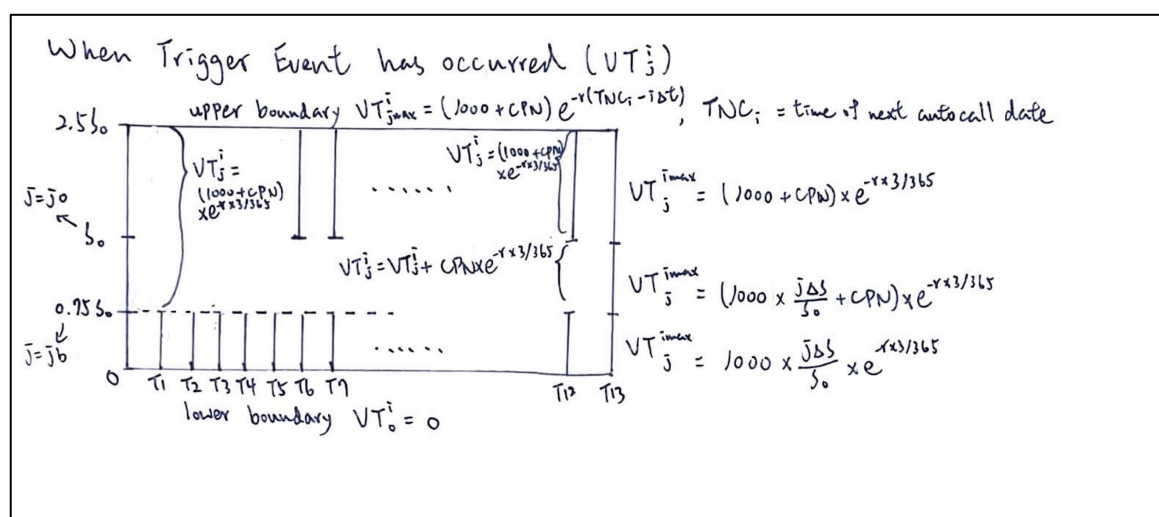 When Trigger Event has occurred (VT_j^i)
upper boundary VT_{jmax}^i = (1000 + CPN) e^{-r(TNC_i - iΔt)}, TNC_i = time of next autocall date
2.5S_0
VT_j^i =
(1000+CPN)
×e^{-r×3/365}
VT_j^i = (1000+CPN)
×e^{-r×3/365}
......
VT_j^{imax} = (1000 + CPN) × e^{-r×3/365}
j=j0
S_0
VT_j^i = VT_j^i + CPN×e^{-r×3/365}
VT_j^{imax} = (1000 × jΔS/S_0 + CPN) × e^{-r×3/365}
0.75S_0
j=jb
......
VT_j^{imax} = 1000 × jΔS/S_0 × e^{-r×3/365}
0 T1 T2 T3 T4 T5 T6 T7 T12 T13
lower boundary VT_0^i = 0